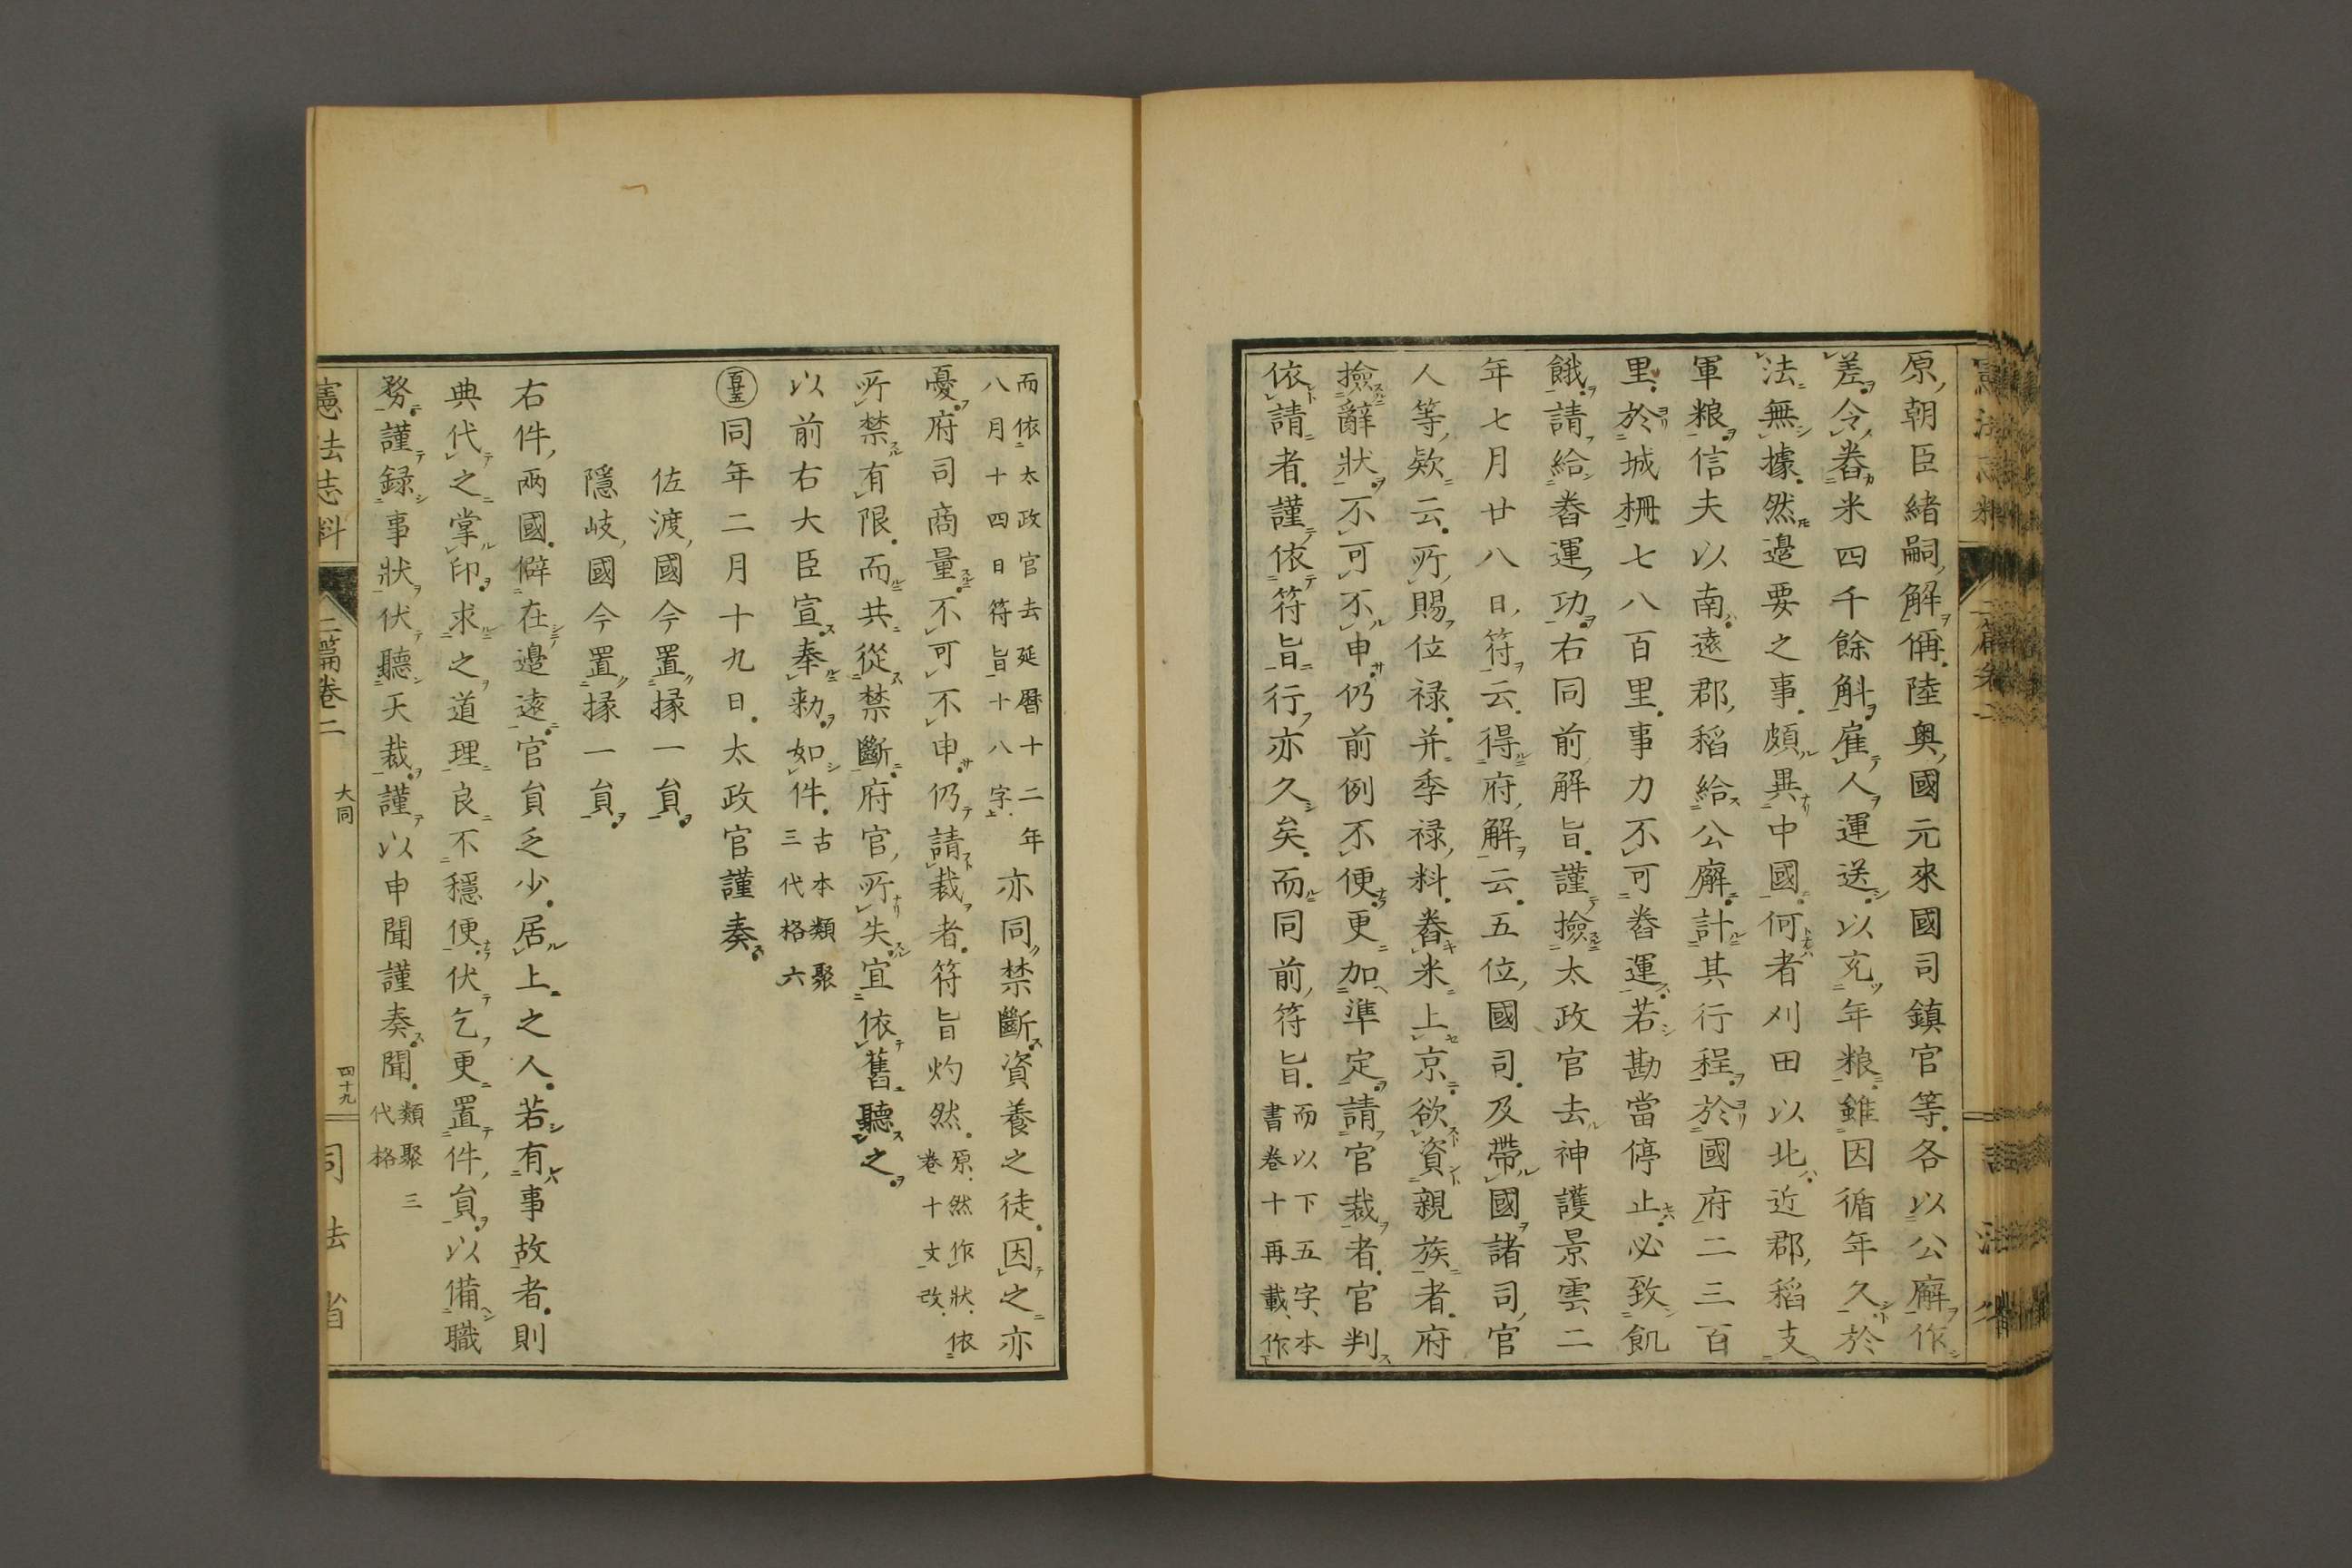 原朝臣緒嗣解偁陸奧國元來國司鎮官等各以公廨作
差令舂米四千餘斛雇人運送以充年粮雖因循年久於
法無據然邊要之事頗異中國何者刈田以北近郡稻支
軍粮信夫以南遠郡稻給公廨計其行程於國府二三百
里於城柵七八百里事力不可舂運若勘當停止必致飢
餓請給舂運功右同前解旨謹撿太政官去神護景雲二
年七月廿八日符云得府解云五位國司及帶國諸司官
人等欵云所賜位祿并季祿料舂米上京欲資親族者府
撿辭狀不可不申仍前例不便更加準定請官裁者官判
依請者謹依符旨行亦久矣而同前符旨
而以下五字、本
書卷十再載、作
而依太政官去延暦十二年
八月十四日符旨十八字
亦同禁斷資養之徒因之亦
憂府司商量不可不申仍請裁者符旨灼然
原然作狀依
卷十文改
所禁有限而共從禁斷府官所失宜依舊聽之
以前右大臣宣奉勅如件
古本類聚
三代格六
同年二月十九日太政官謹奏
佐渡國今置掾一員
隱岐國今置掾一員
右件兩國僻在邊遠官員乏少居上之人若有事故者則
典代之掌印求之道理良不穩便伏乞更置件員以備職
務謹録事狀伏聽天裁謹以申聞謹奏聞
類聚三
代格
憲法志料
二篇卷二
大同
四十九
司法省